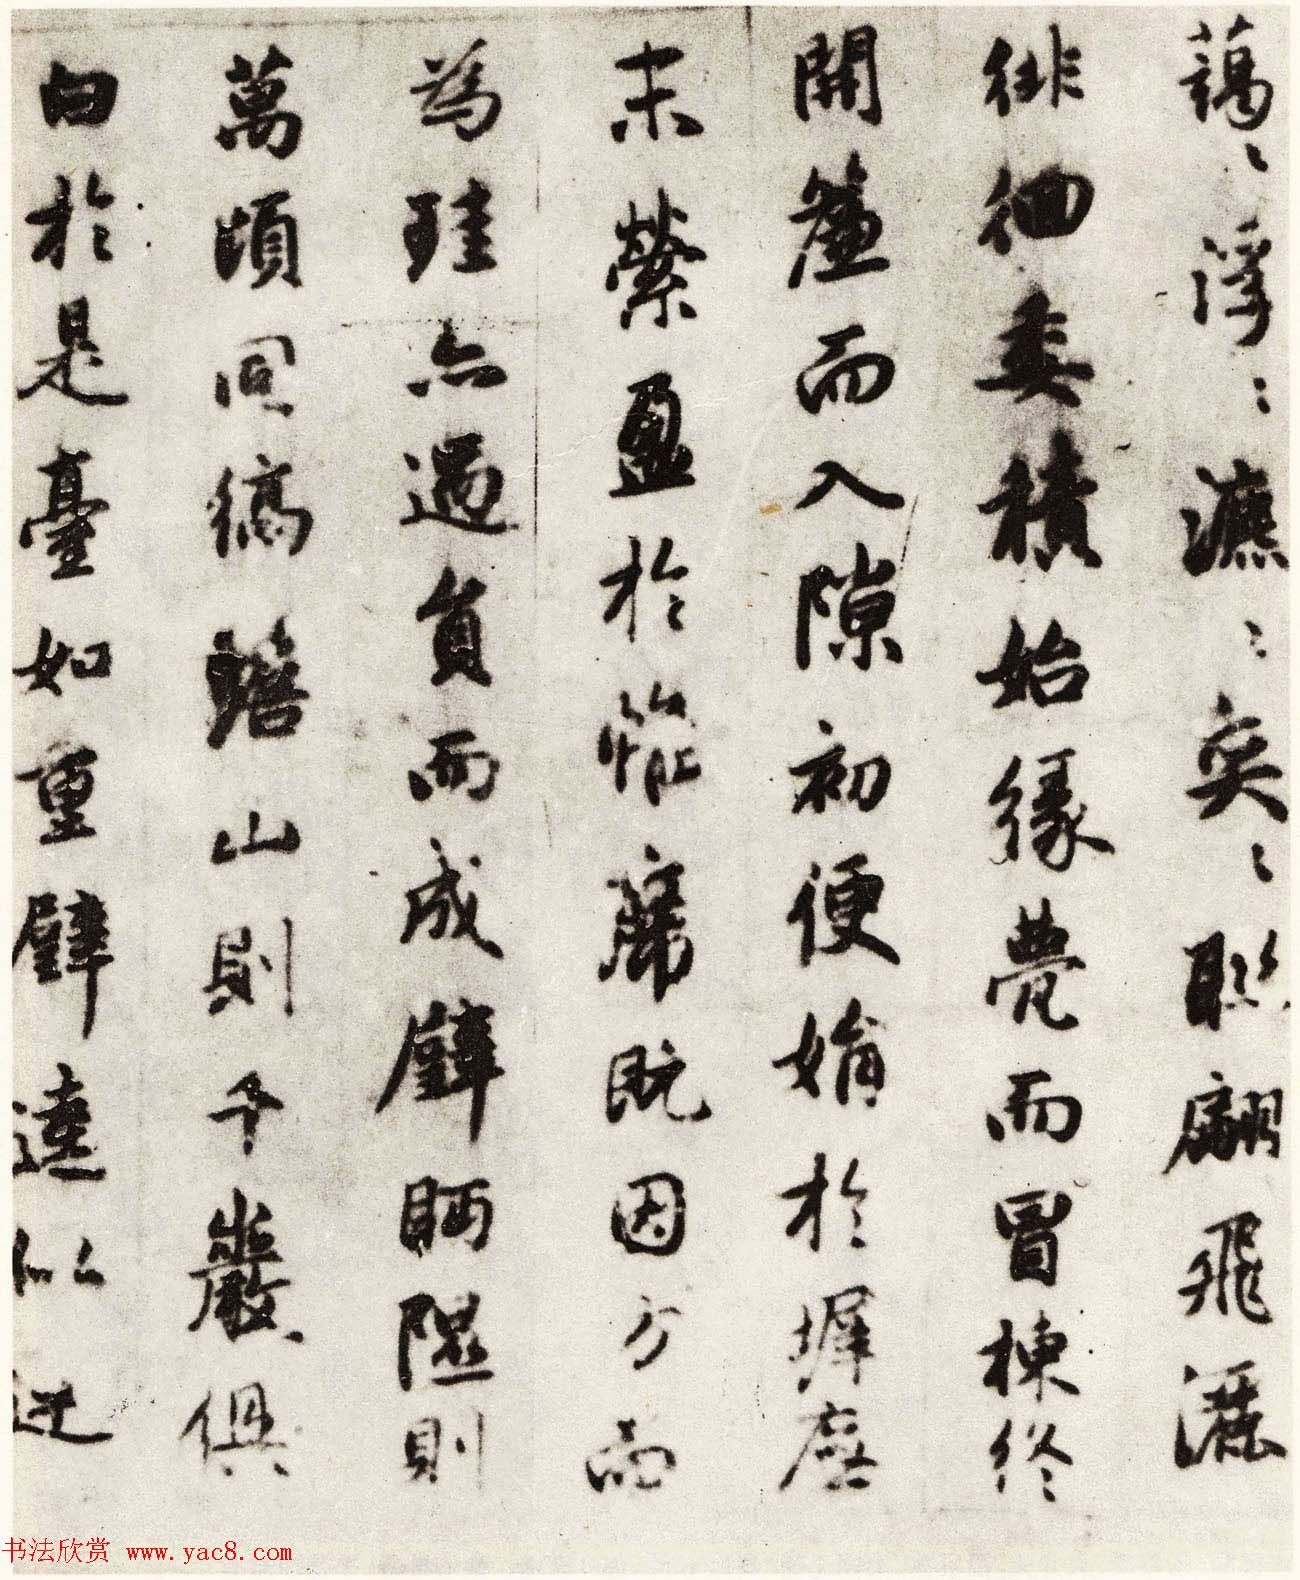 藹〻浮〻瀌〻奕〻聯翩飛灑
徘徊委積始緣甍而冒棟終
開簾而入隙初便娟於墀廡
末縈盈於帷席既因方而
為珪亦遇員而成璧眄隰則
萬頃同縞瞻山則千巖俱
白於是臺如重璧逵似連
书法欣赏 www.yac8.com